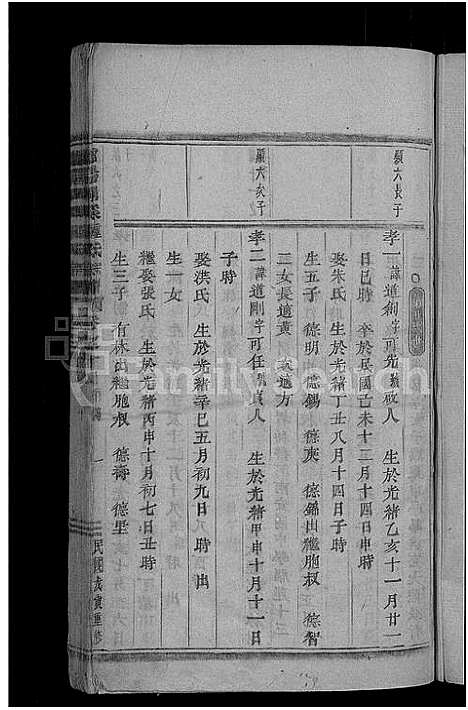 顯六長子
孝一諱道絢字可先號敬人 生於光緒乙亥十一月廿一
日巳時 卒於民國己未十二月十四日申時
娶朱氏 生於光緒丁丑八月十四日子時
生五子 德明 德錫 德庚 德鐋出繼胞叔 德智
二女長適黃 次適方
顯六次子
孝二諱道剛字可任號貞人 生於光緒甲申十月十一日
子時
娶洪氏 生於光緒辛巳五月初九日 時 出
生一女
繼娶張氏 生於光緒丙申十月初七日丑時
生三子 有林出繼胞叔 德壽 德墅
一
民國戊寅重修